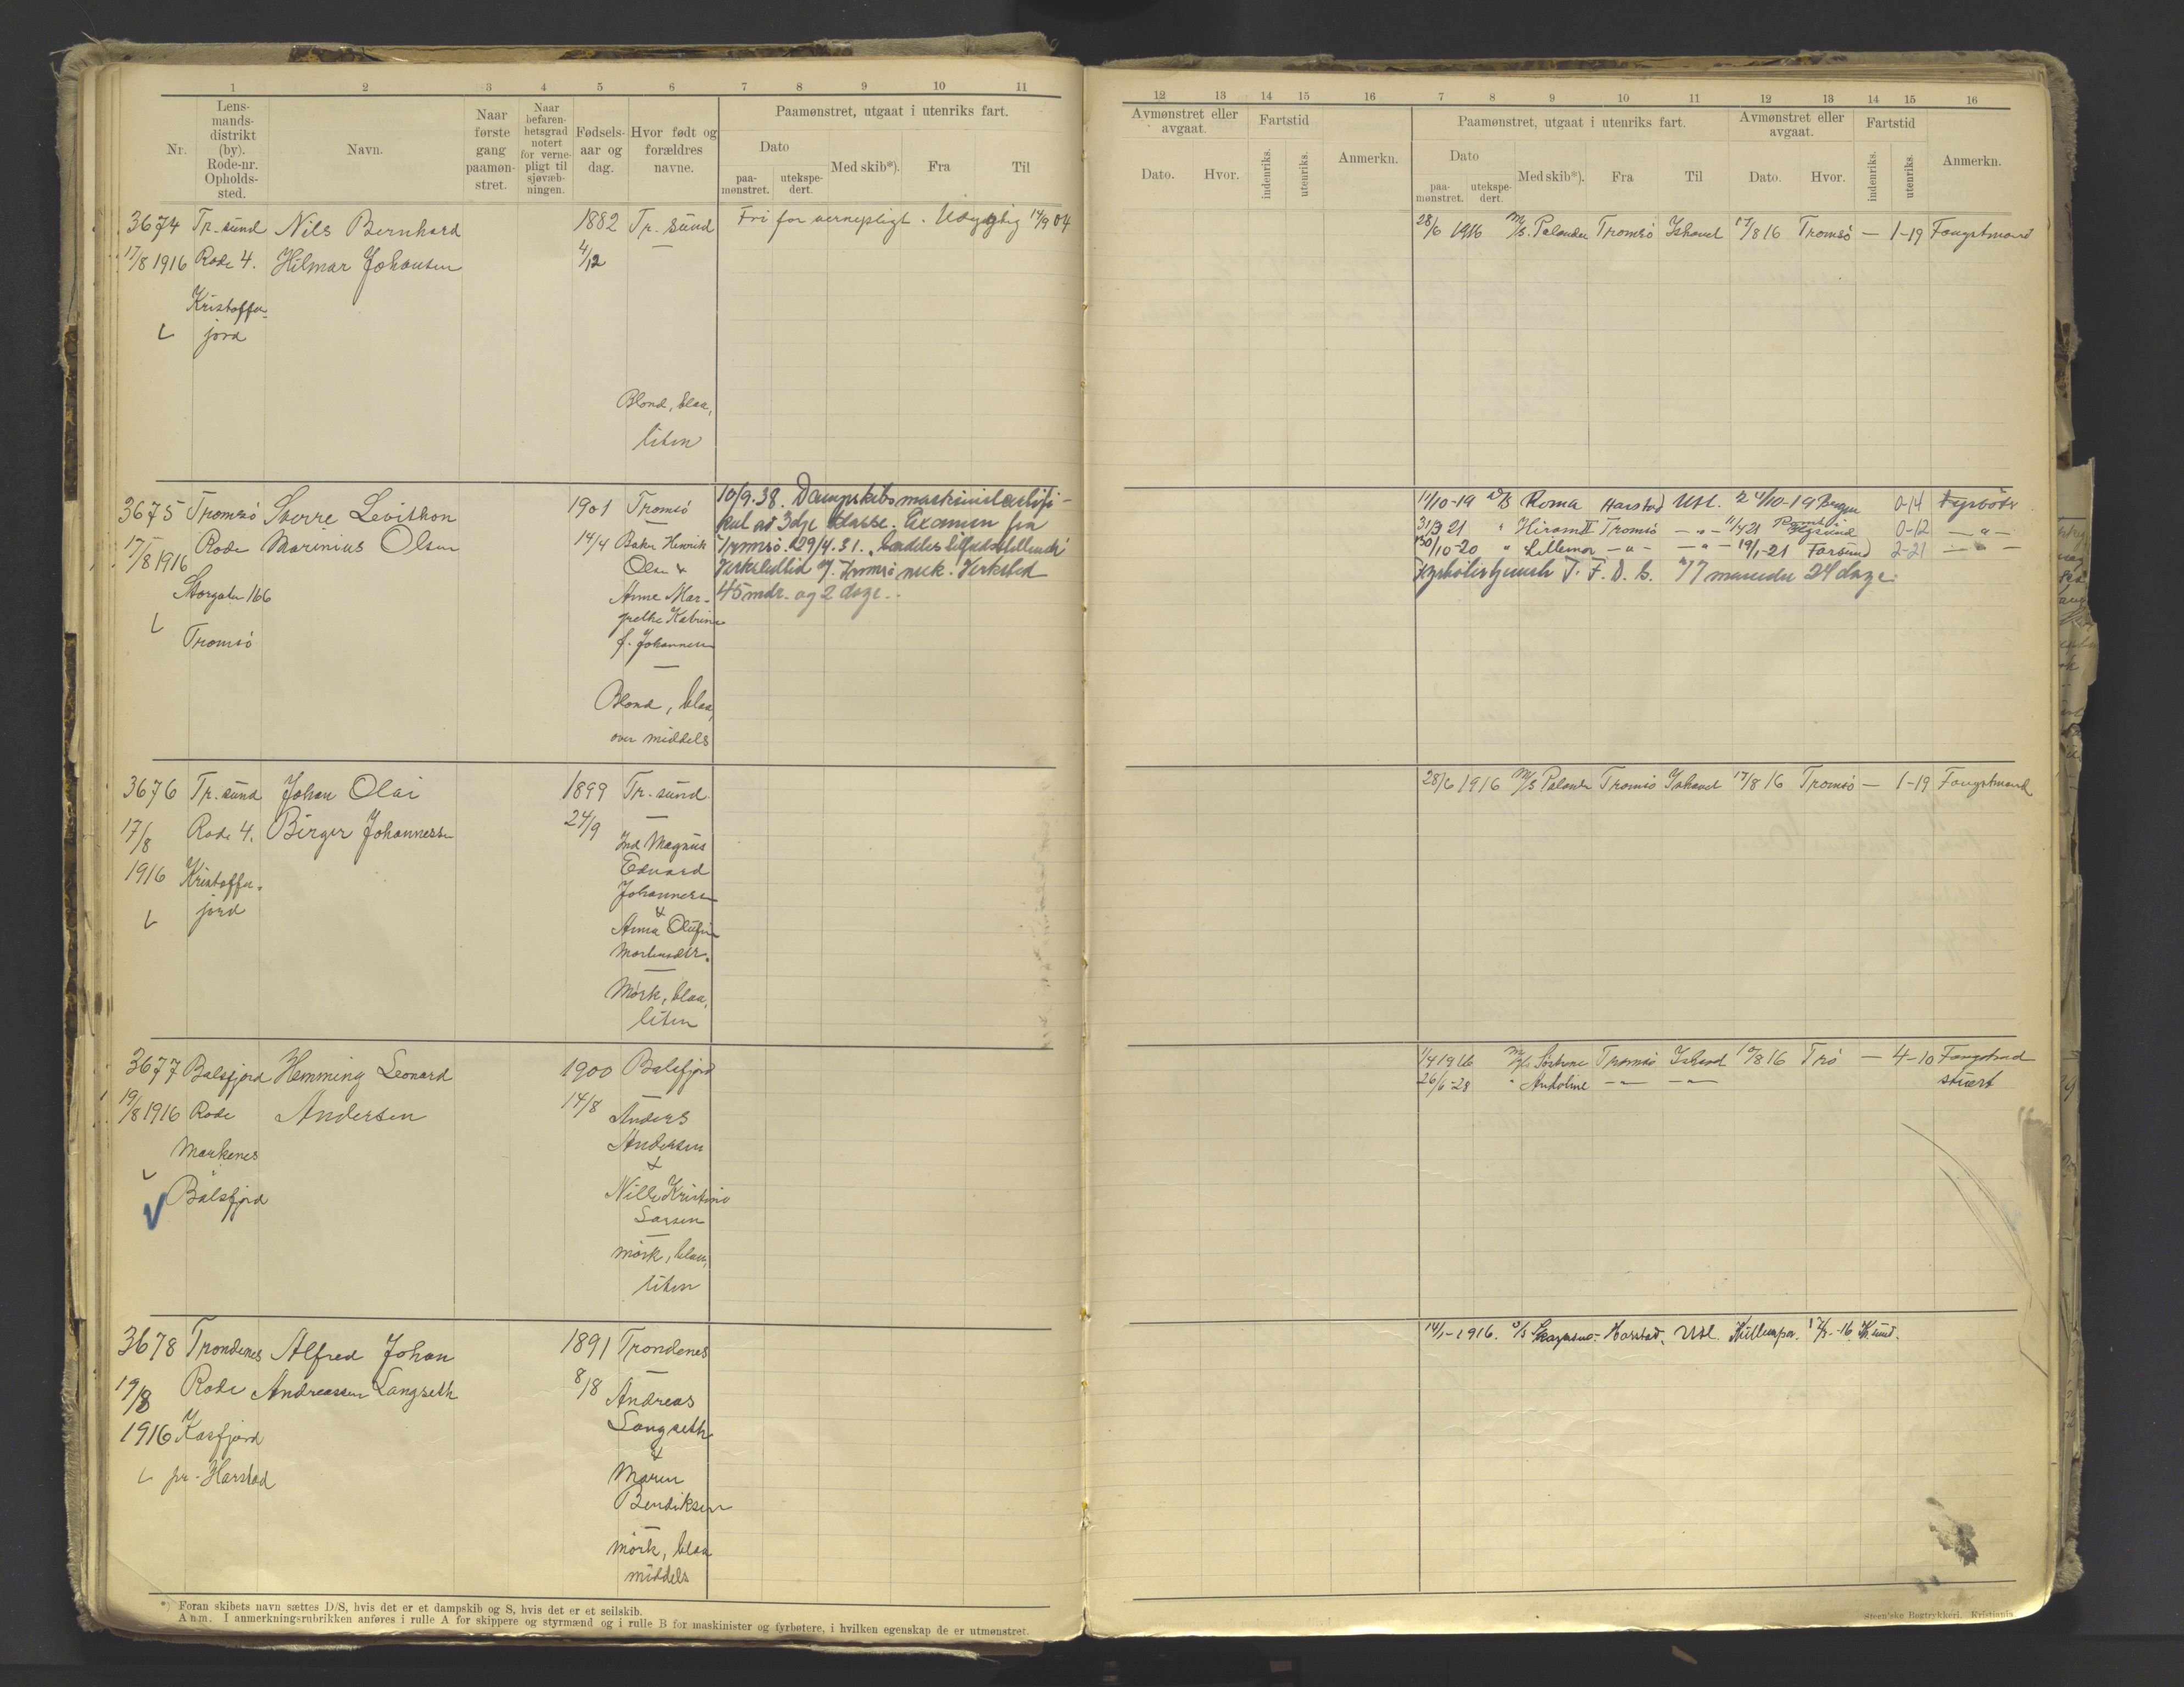 1 2 3 4 5 6 7 8 9 10 11
Nr.
Lens-
mands-
distrikt
(by).
Rode-nr.
Opholds-
sted.
Navn.
Naar
første
gang
paamøn-
stret.
Naar
befaren-
hetsgrad
notert
for verne-
pligt til
sjøvæb-
ningen.
Fødsels-
aar og
dag.
Hvor født og
forældres
navne.
Paamønstret, utgaat i utenriks fart.
Dato
paa-
mønstret.
utekspe-
dert.
Med skib*).
Fra
Til
3674 Tr.sund Nils Bernhard 1882 Tr. sund Fri for vernepligt. Udygtig 14/9 04
17/8 1916 Rode 4. Hilmar Johansen 4/12 —
Kristoffer-
jord
Blond, blaa,
liten
3675 Tromsø Sverre Levithon 1901 Tromsø
17/8 1916 Rode Marinius Olsen 14/4
Storgaten 166
Tromsø
Baker Henrik
Olsen &
Anne Mar-
grethe Katrine
f. Johannesen
—
Blond, blaa,
over middels
10/9.38. Dampskibsmaskinistcertifi-
kat av 3dje klasse. Examen fra
Tromsø 29/4.31.
Verkstedtid v/ Tromsø mek. Verksted
45 mdr. og 2 dage.
3676 Tr.sund Johan Olai 1899 Tr.sund.
17/8 Rode 4. Birger Johannessen 24/9 —
1916 Kristoffer-
jord
Ind Magnus
Edvard
Johannesen
&
Anna Olufine
Mortensdtr.
—
Mørk, blaa,
liten
3677 Balsfjord Hemming Leonard 1900 Balsfjord
19/8 1916 Rode Andersen 14/8 —
Markenes
Balsfjord
Anders
Andersen
&
Nille Kristine
Larsen
—
mørk, blaa,
liten
3678 Trondenes Alfred Johan 1891 Trondenes
19/8 Rode Andreassen Langseth 8/8 —
1916 Kasfjord
pr. Harstad
Andreas
Langseth
&
Maren
Bendiksen
—
mørk, blaa
middels
*) Foran skibets navn sættes D/S, hvis det er et dampskib og S, hvis det er et seilskib.
Anm. I anmerkningsrubrikken anføres i rulle A for skippere og styrmænd og i rulle B for maskinister og fyrbøtere, i hvilken egenskap de er utmønstret.
12 13 14 15 16 7 8 9 10 11 12 13 14 15 16
Avmønstret eller
avgaat.
Dato. Hvor.
Fartstid
indenriks.
utenriks.
Anmerkn.
Paamønstret, utgaat i utenriks fart.
Dato
paa-
mønstret.
utekspe-
dert.
Med skib*).
Fra
Til
Avmønstret eller
avgaat.
Dato. Hvor.
Fartstid
indenriks.
utenriks.
Anmerkn.
28/6 1916 M/S. Palander Tromsø Ishavet 17/8 16 Tromsø — 1-19 Fangstmand
11/10-19 D/S Roma Harstad Utl. 24/10-19 Bergen 0-14 Fyrbøter
31/3 21 " Hiram II Tromsø —"— 11/4 21 0-12 —"—
30/10-20 " Lillemor —"— —"— 19/1-21 Farsund 2-21 —"—
Fyrbøtertjeneste T. F. D. S. 77 maneder 24 dage.
28/6 1916 M/S Palander Tromsø Ishavet 17/8 16 Tromsø — 1-19 Fangstmand
1/4 1916 Tromsø Ishavet 10/8 16 Trø — 4-10 Fangstmd
26/6-28 " Andoline —"— —"— stuert
14/1-1916. Harstad. Utl. 16 Kr.sund.
Steen'ske Bogtrykkeri. Kristiania